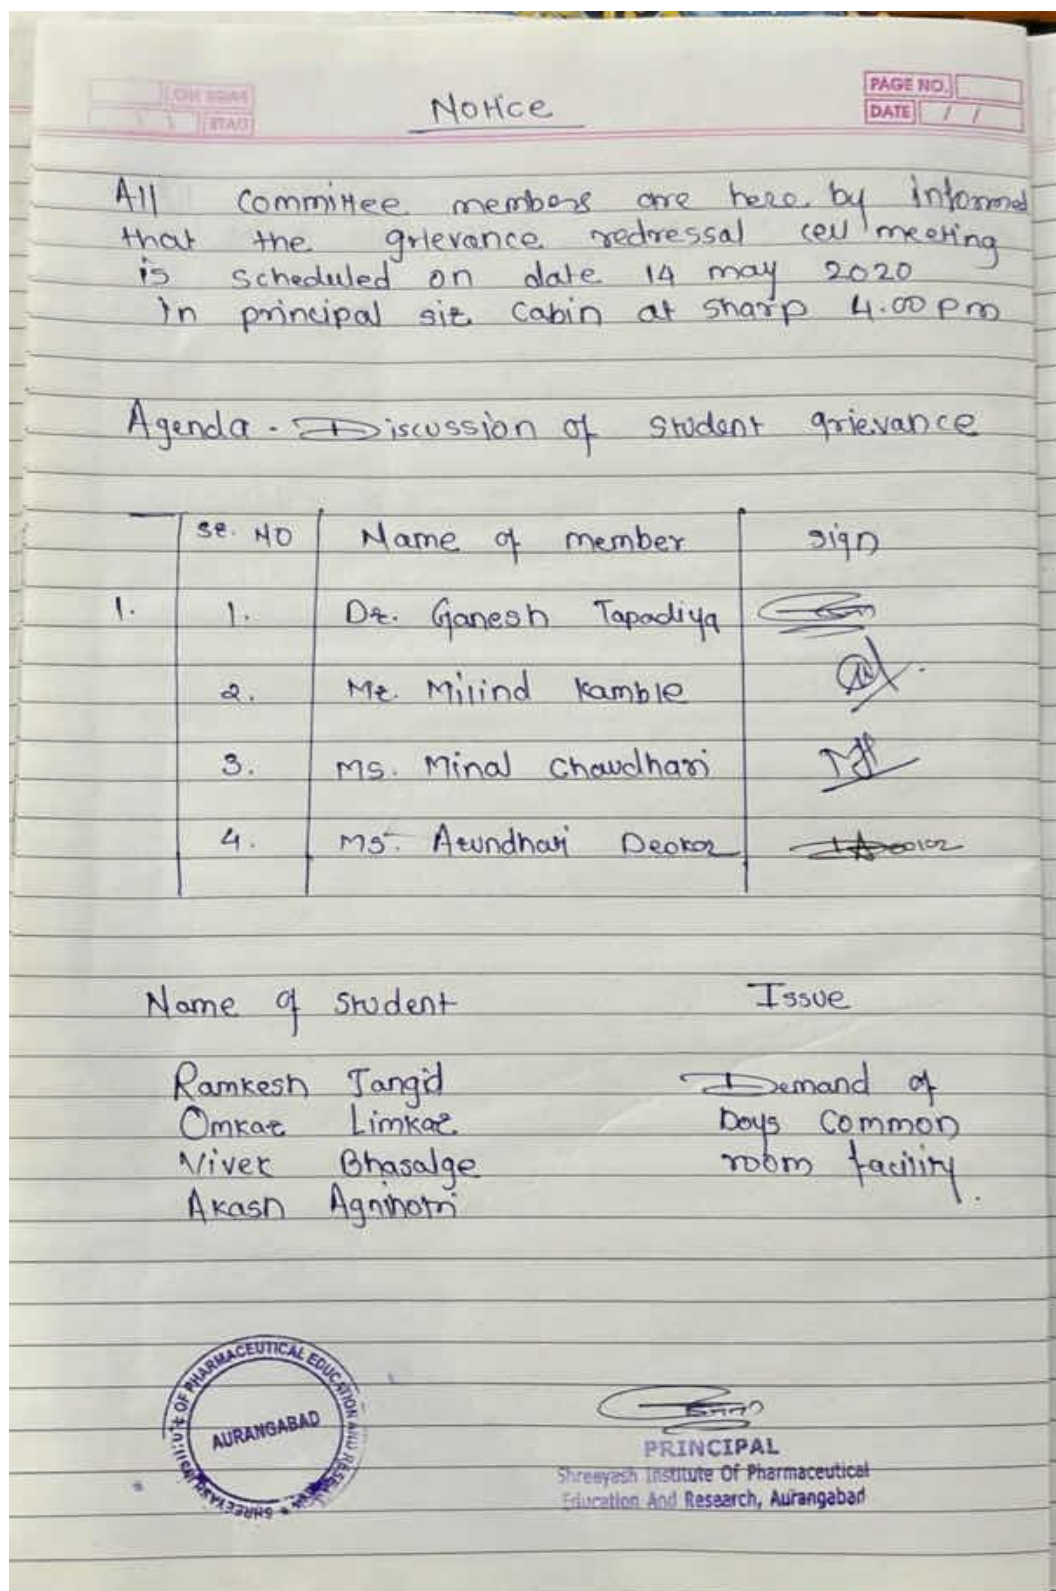 Notice
PAGE NO.
DATE / /
All committee members are here by informed
that the grievance redressal cell meeting
is scheduled on date 14 may 2020
in principal sir cabin at sharp 4.00 pm
Agenda - Discussion of student grievance
Sr. NO Name of member sign
1. 1. Dr. Ganesh Tapadiya
2. Mr. Milind Kamble
3. Ms. Minal Chaudhari
4. Ms. Arundhati Deokar
Name of student Issue
Ramkesh Jangid Demand of
Omkar Limkar boys common
Vivek Bhasalge room facility.
Akash Agnihotri
SHREEYASH INSTITUTE OF PHARMACEUTICAL EDUCATION AND RESEARCH
AURANGABAD
PRINCIPAL
Shreeyash Institute Of Pharmaceutical
Education And Research, Aurangabad